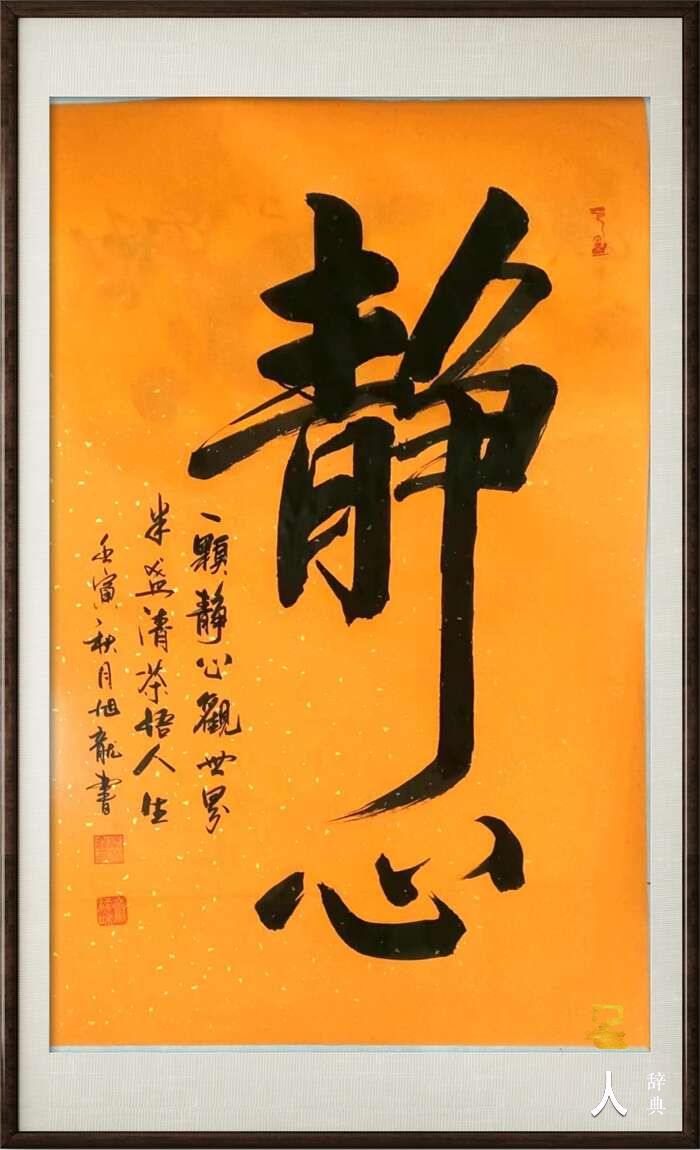 静心
一顆静心觀世界
半盏清茶悟人生
壬寅秋月旭龍書
名人
辞典